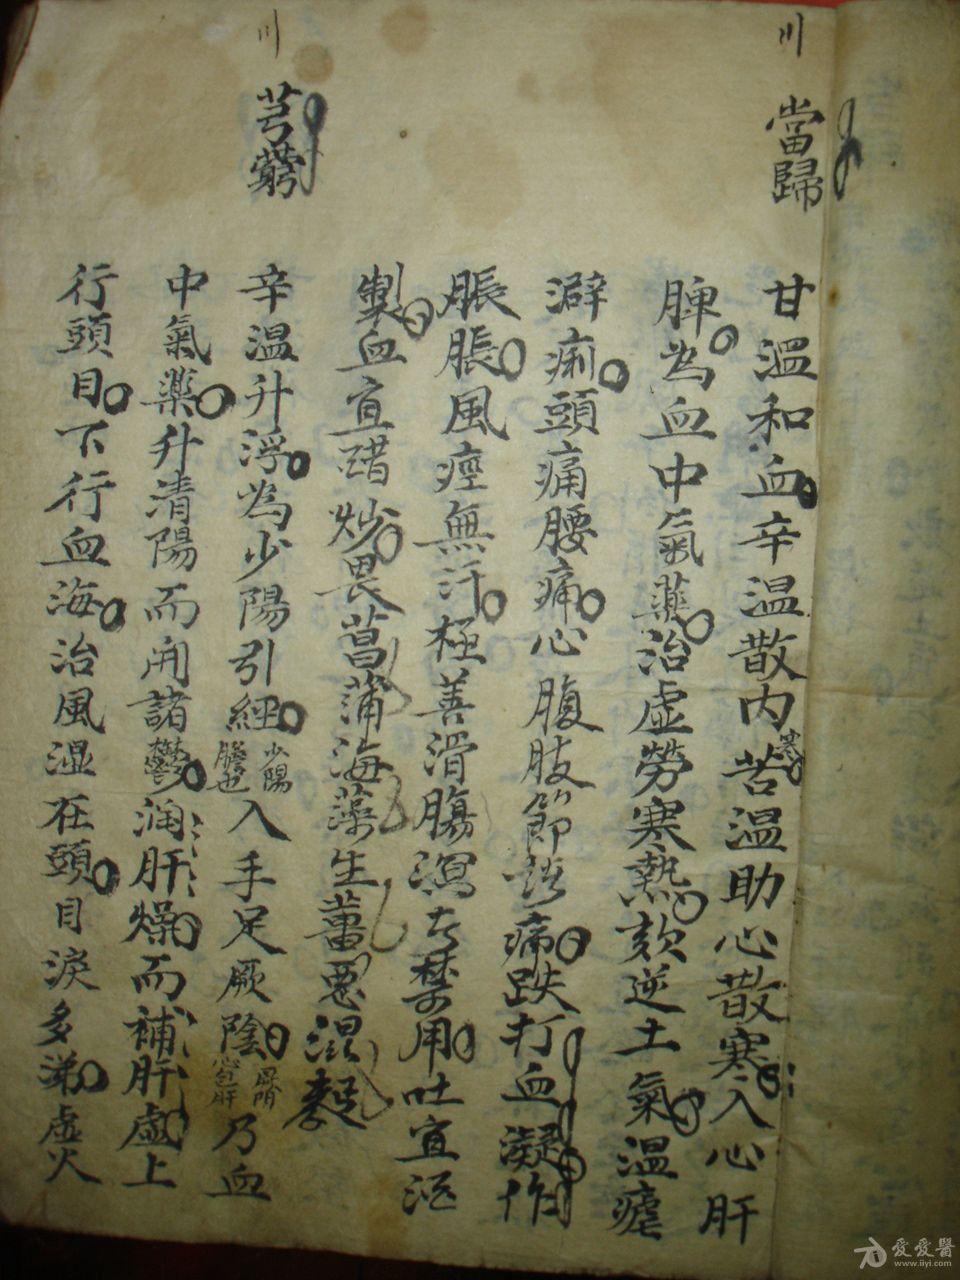 川
當歸
甘溫和血辛温散内寒苦温助心散寒入心肝
脾為血中氣藥治虛勞寒熱欬逆上氣温瘧
澼痢頭痛腰痛心腹肢節諸痛跌打血凝作
脹脹風痙無汗極善滑腸瀉者禁用吐宜酒
製血宜醋炒畏菖蒲海藻生薑惡濕麫
川
芎藭
辛温升浮為少陽引經少陽膽也入手足厥陰心包肝乃血
中氣藥升清陽而開諸鬱潤肝燥而補肝虛上
行頭目下行血海治風湿在頭目淚多涕虛火
愛愛醫
www.iiyi.com